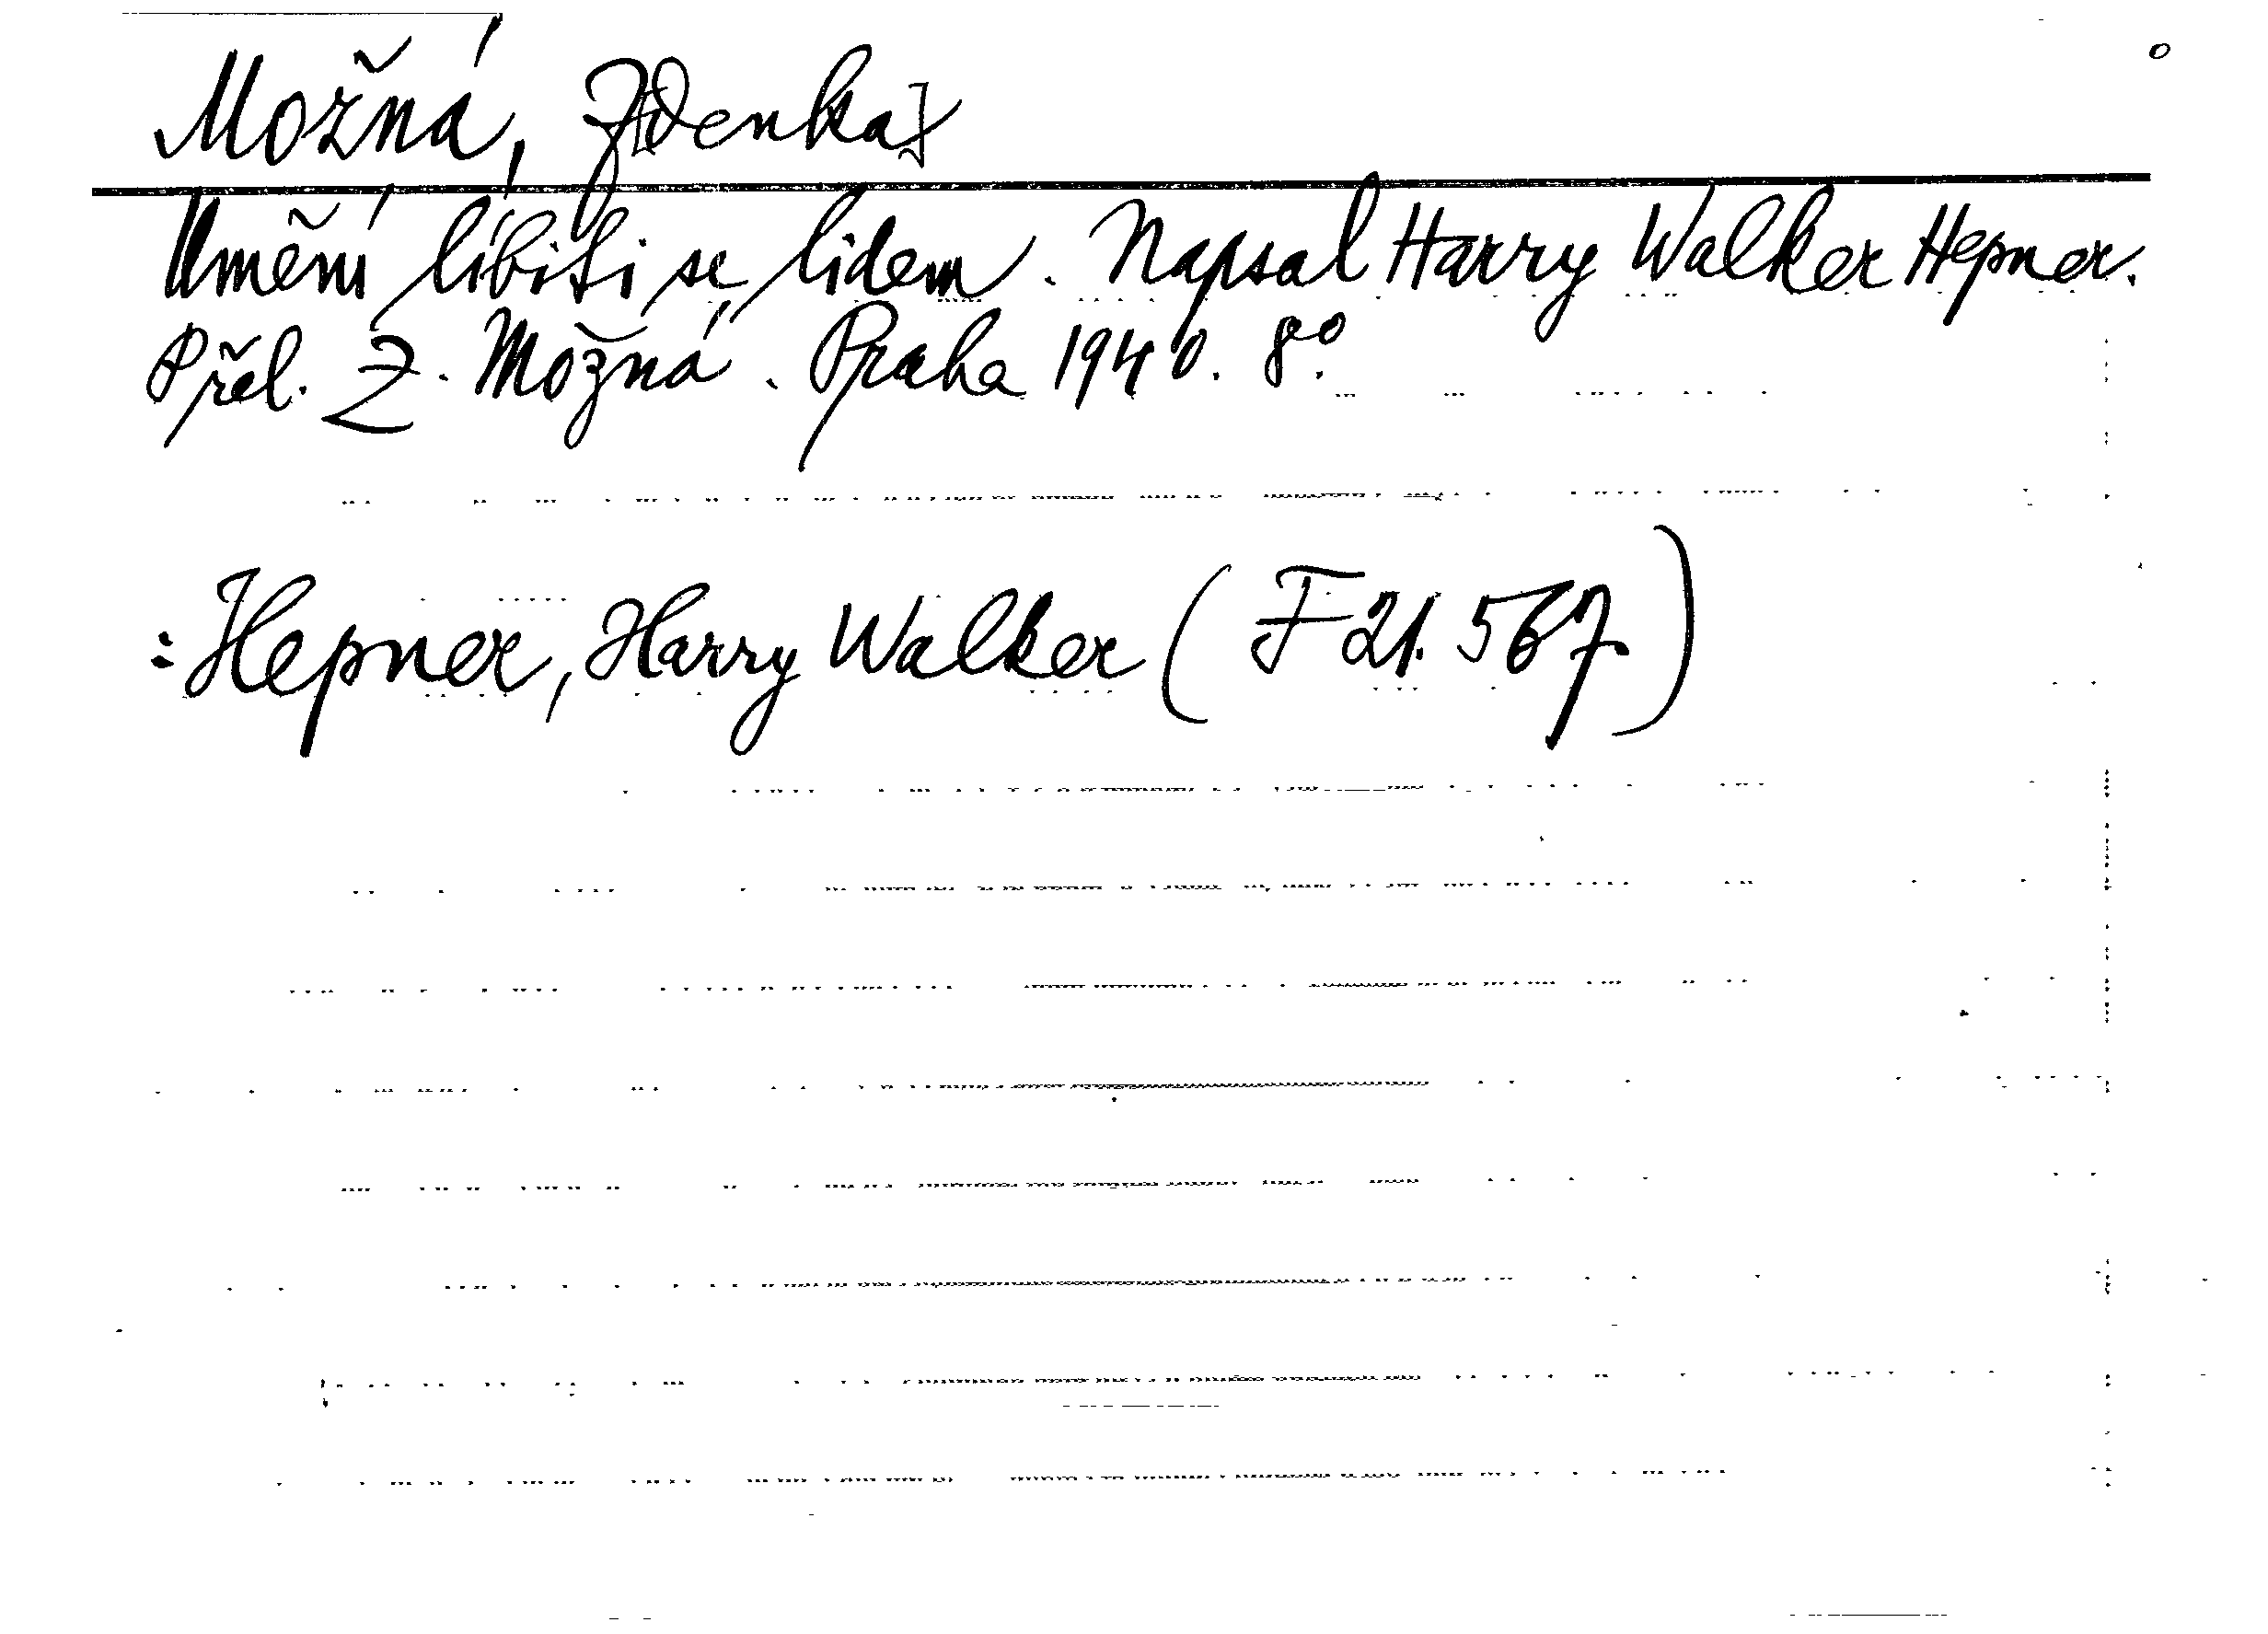 Možná, Z[denka]
Umění líbiti se lidem. Napsal Harry Walker Hepner.
Přel. Z. Možná. Praha 1940. 8°.
: Hepner, Harry Walker (F 21.567)